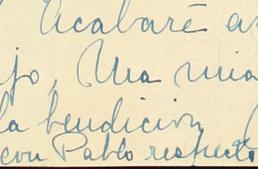 Acabaré a
jo, Una mia
la bendición
con Pablo respecto